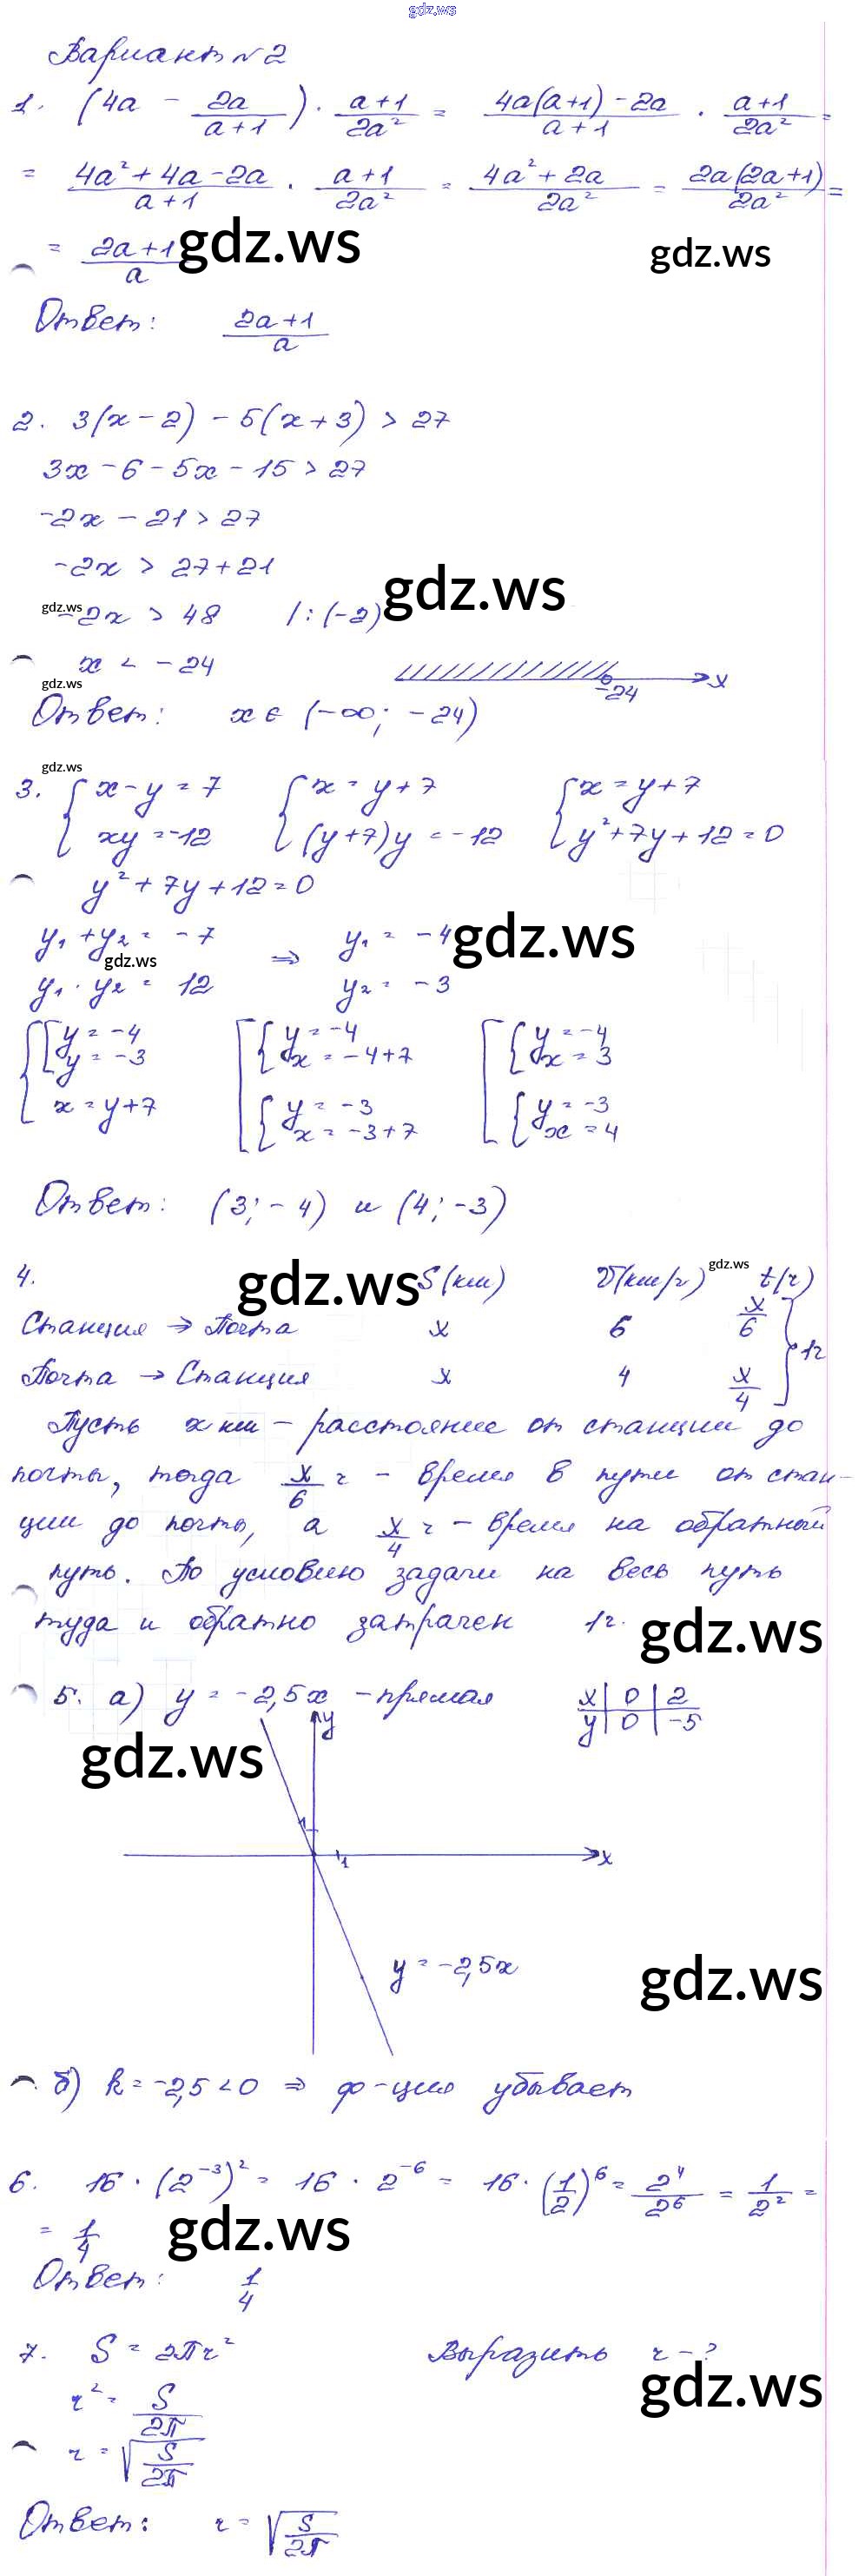 gdz.ws
Вариант №2
1. (4a - 2a/(a+1)) · (a+1)/(2a²) = (4a(a+1) - 2a)/(a+1) · (a+1)/(2a²) =
= (4a² + 4a - 2a)/(a+1) · (a+1)/(2a²) = (4a² + 2a)/(2a²) = 2a(2a+1)/(2a²) =
= (2a+1)/a gdz.ws gdz.ws
Ответ: (2a+1)/a
2. 3(x-2) - 5(x+3) > 27
3x - 6 - 5x - 15 > 27
-2x - 21 > 27
-2x > 27+21
gdz.ws -2x > 48 |:(-2) gdz.ws
x < -24 -24 x
gdz.ws
Ответ: x ∈ (-∞; -24)
gdz.ws
3. { x-y = 7 { x = y+7 { x = y+7
xy = -12 (y+7)y = -12 y²+7y+12 = 0
y² + 7y + 12 = 0
y₁ + y₂ = -7 ⇒ y₁ = -4 gdz.ws
gdz.ws
y₁ · y₂ = 12 y₂ = -3
{ [ y = -4 [ { y = -4 [ { y = -4
y = -3 x = -4+7 x = 3
x = y+7 { y = -3 { y = -3
x = -3+7 x = 4
Ответ: (3; -4) и (4; -3)
4. gdz.ws S(км) V(км/ч) gdz.ws t(ч)
Станция → Почта x 6 x/6 } 1ч
Почта → Станция x 4 x/4
Пусть x км - расстояние от станции до
почты, тогда x/6 ч - время в пути от стан-
ции до почты, а x/4 ч - время на обратный
путь. По условию задачи на весь путь
туда и обратно затрачен 1ч. gdz.ws
5. а) y = -2,5x - прямая x | 0 | 2
y | 0 | -5
gdz.ws
y
1
1 x
y = -2,5x
gdz.ws
б) k = -2,5 < 0 ⇒ ф-ция убывает
6. 16 · (2⁻³)² = 16 · 2⁻⁶ = 16 · (1/2)⁶ = 2⁴/2⁶ = 1/2² =
= 1/4 gdz.ws
Ответ: 1/4
7. S = 2πr² Выразить r - ?
r² = S/2π gdz.ws
r = √(S/2π)
Ответ: r = √(S/2π)